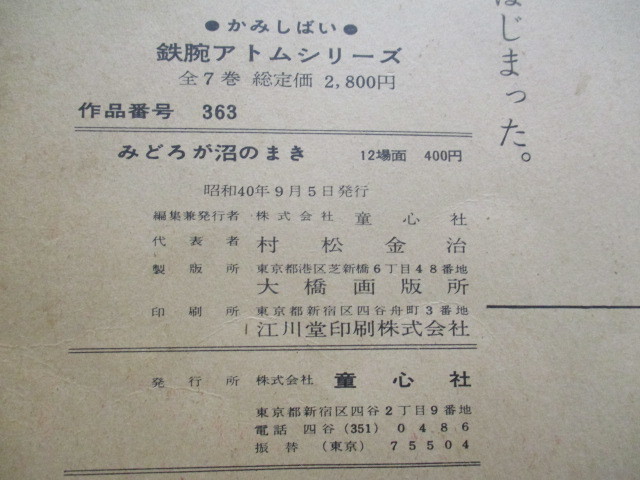 ●かみしばい●
鉄腕アトムシリーズ
全7巻 総定価 2,800円
作品番号 363
みどろが沼のまき 12場面 400円
昭和40年9月5日発行
編集兼発行者 株式会社 童心社
代表者 村松金治
製版所 東京都港区芝新橋6丁目48番地
大橋画版所
印刷所 東京都新宿区四谷舟町3番地
江川堂印刷株式会社
発行所 株式会社 童心社
東京都新宿区四谷2丁目9番地
電話 四谷(351) 0486
振替 (東京) 75504
はじまった。